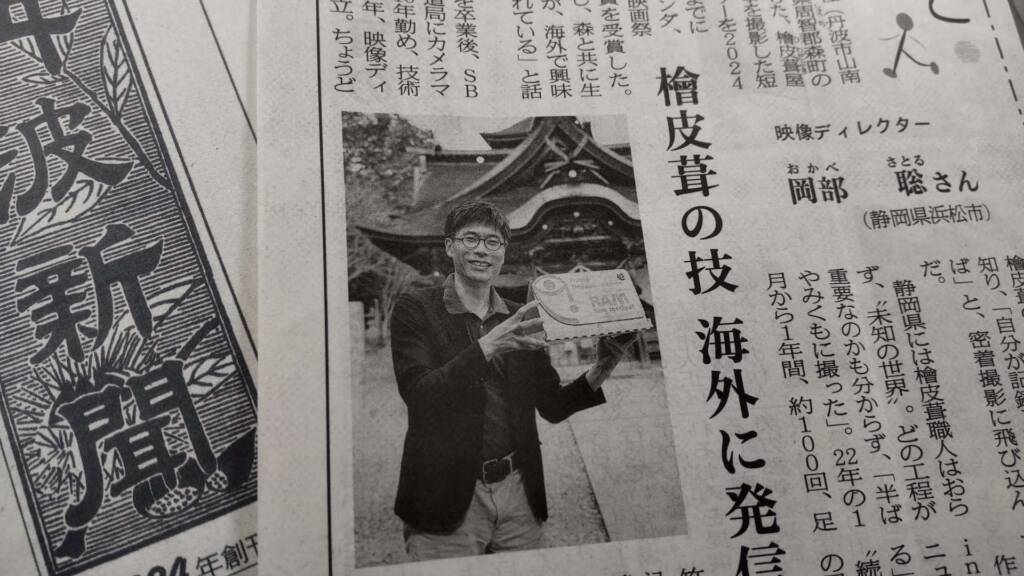 丹波新聞
年創刊
檜皮葺の技 海外に発信
映像ディレクター
おかべ さとる
岡部 聡さん
(静岡県浜松市)
丹波市山南
周智郡森町の
た、檜皮葺屋
を撮影した短
ーを2024
までに
ンダ、
映画祭
賞を受賞した。
し、森と共に生
が、海外で興味
れている」と話
を卒業後、SB
送局にカメラマ
年勤め、技術
年、映像ディ
立。ちょうど
知り、「自分が記録
ば」と、密着撮影に飛び込ん
だ。
静岡県には檜皮葺職人はおら
ず、“未知の世界”。どの工程が
重要なのかも分からず、「半ば
やみくもに撮った」。22年の1
月から1年間、約100回、足
作
in
ニュ
る」
“続
の